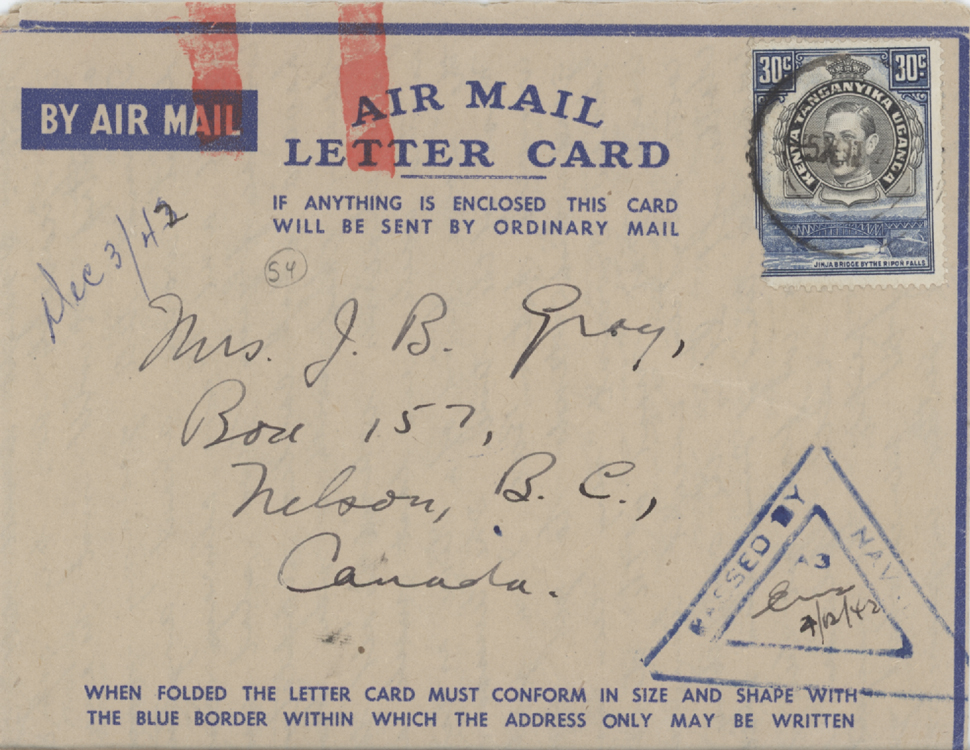 BY AIR MAIL
AIR MAIL
LETTER CARD
IF ANYTHING IS ENCLOSED THIS CARD
WILL BE SENT BY ORDINARY MAIL
30c 30c
KENYA TANGANYIKA UGANDA
JINJA BRIDGE BY THE RIPON FALLS
Dec 3/42
54
Mrs. J. B. Gray,
Box 157,
Nelson, B. C.,
Canada.
PASSED BY
A3
4/12/42
WHEN FOLDED THE LETTER CARD MUST CONFORM IN SIZE AND SHAPE WITH
THE BLUE BORDER WITHIN WHICH THE ADDRESS ONLY MAY BE WRITTEN